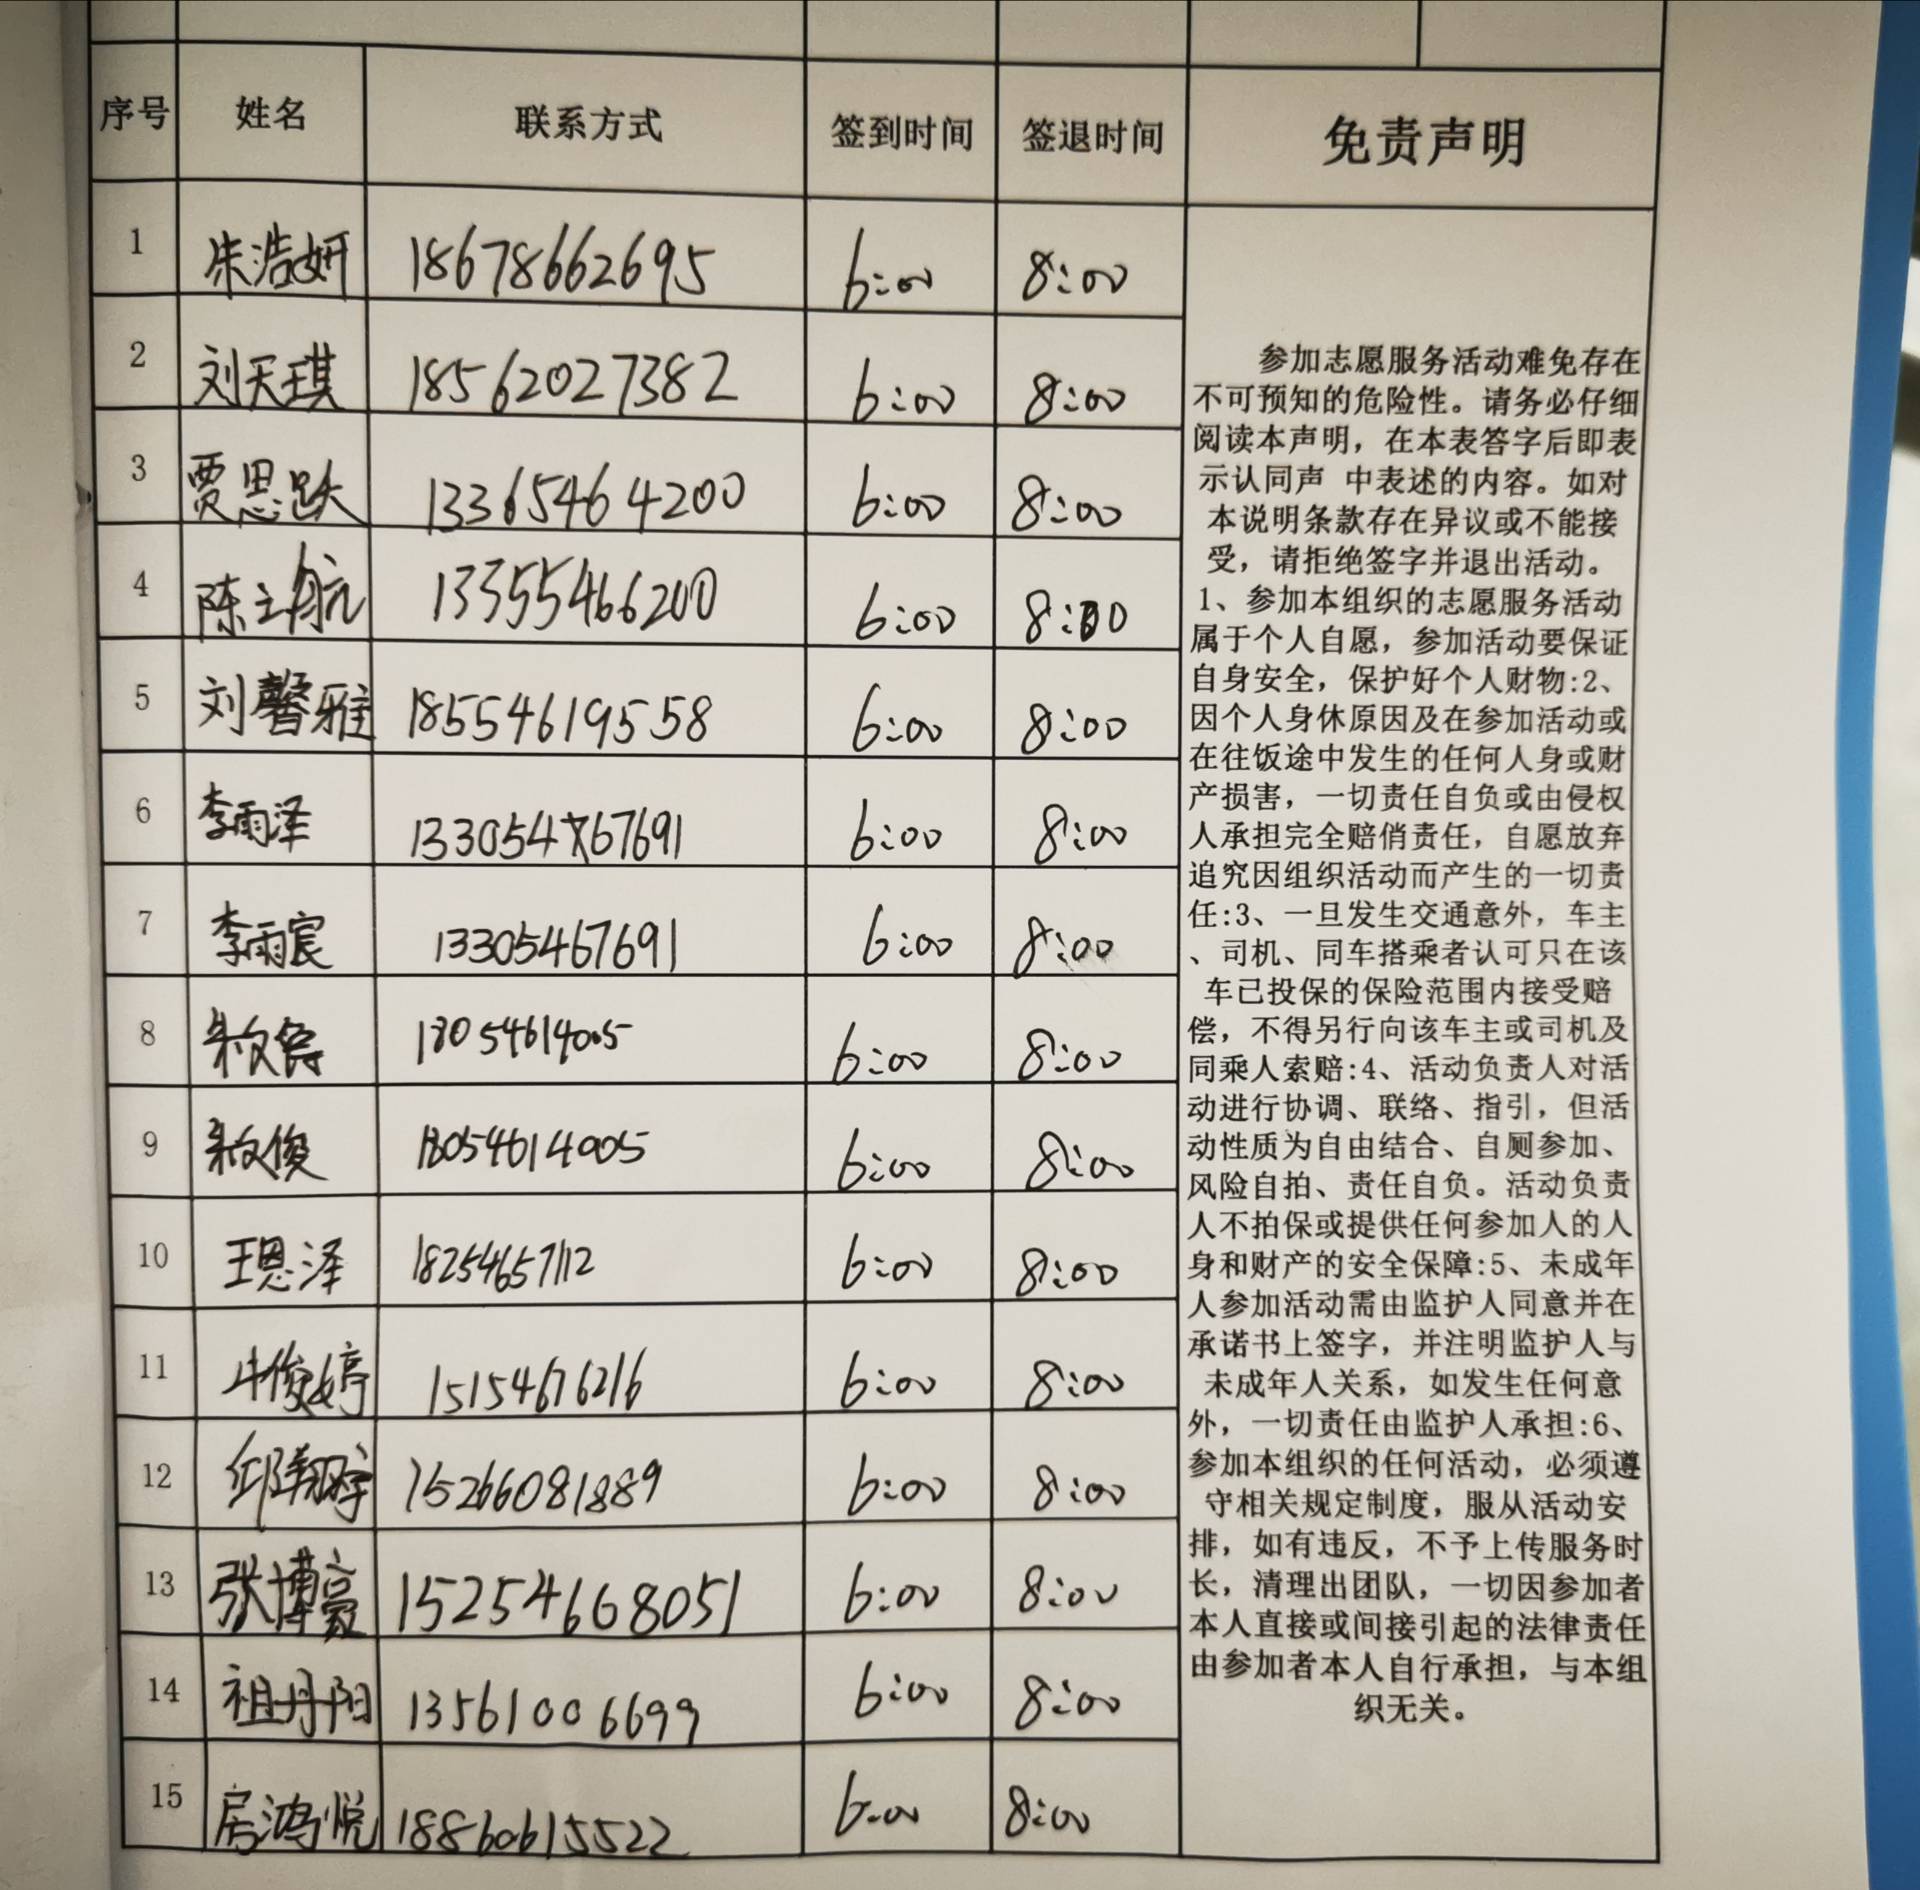 序号 姓名 联系方式 签到时间 签退时间 免责声明
1 朱浩妍 18678662695 6:00 8:00
2 刘天琪 18562027382 6:00 8:00
3 贾思跃 13365464200 6:00 8:00
4 陈立航 13355466200 6:00 8:00
5 刘馨雅 18554619558 6:00 8:00
6 李雨泽 13305467691 6:00 8:00
7 李雨宸 13305467691 6:00 8:00
8 18054614005 6:00 8:00
9 18054614005 6:00 8:00
10 王恩泽 18254657112 6:00 8:00
11 牛俊婷 15154676216 6:00 8:00
12 邱翔宇 15266081889 6:00 8:00
13 张博豪 15254668051 6:00 8:00
14 祖丹阳 13561006699 6:00 8:00
15 房鸿悦 18860615522 6:00 8:00
参加志愿服务活动难免存在
不可预知的危险性。请务必仔细
阅读本声明，在本表答字后即表
示认同声 中表述的内容。如对
本说明条款存在异议或不能接
受，请拒绝签字并退出活动。
1、参加本组织的志愿服务活动
属于个人自愿，参加活动要保证
自身安全，保护好个人财物:2、
因个人身休原因及在参加活动或
在往饭途中发生的任何人身或财
产损害，一切责任自负或由侵权
人承担完全赔俏责任，自愿放弃
追究因组织活动而产生的一切责
任:3、一旦发生交通意外，车主
、司机、同车搭乘者认可只在该
车已投保的保险范围内接受赔
偿，不得另行向该车主或司机及
同乘人索赔:4、活动负责人对活
动进行协调、联络、指引，但活
动性质为自由结合、自厕参加、
风险自拍、责任自负。活动负责
人不拍保或提供任何参加人的人
身和财产的安全保障:5、未成年
人参加活动需由监护人同意并在
承诺书上签字，并注明监护人与
未成年人关系，如发生任何意
外，一切责任由监护人承担:6、
参加本组织的任何活动，必须遵
守相关规定制度，服从活动安
排，如有违反，不予上传服务时
长，清理出团队，一切因参加者
本人直接或间接引起的法律责任
由参加者本人自行承担，与本组
织无关。